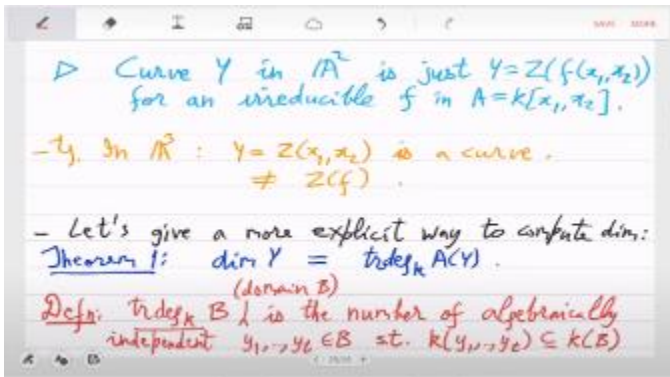 SAVE MORE
▷ Curve Y in 𝔸² is just Y = Z(f(x₁,x₂))
for an irreducible f in A = k[x₁,x₂].
- Eg. In 𝔸³ : Y = Z(x₁,x₂) is a curve.
≠ Z(f).
- Let's give a more explicit way to compute dim:
Theorem 1: dim Y = trdegₖ A(Y).
(domain B)
Defn: trdegₖ B is the number of algebraically
independent y₁,..,yₜ ∈ B st. k(y₁,..,yₜ) ⊆ k(B)